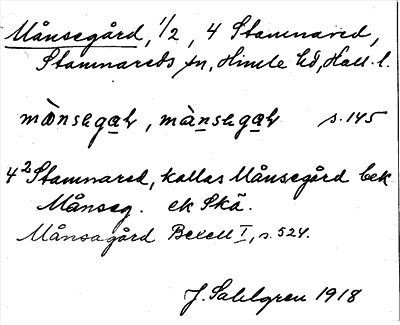 Månsegård, 1/2, 4 Stamnared,
Stamnareds sn, Himle hd, Hall. l.
mànsegaʈ, mànsegaʈ s. 145
4² Stamnared, kallas Månsegård bek
Månseg. ek Skå.
Månsagård Bexell I, s. 524.
J. Sahlgren 1918